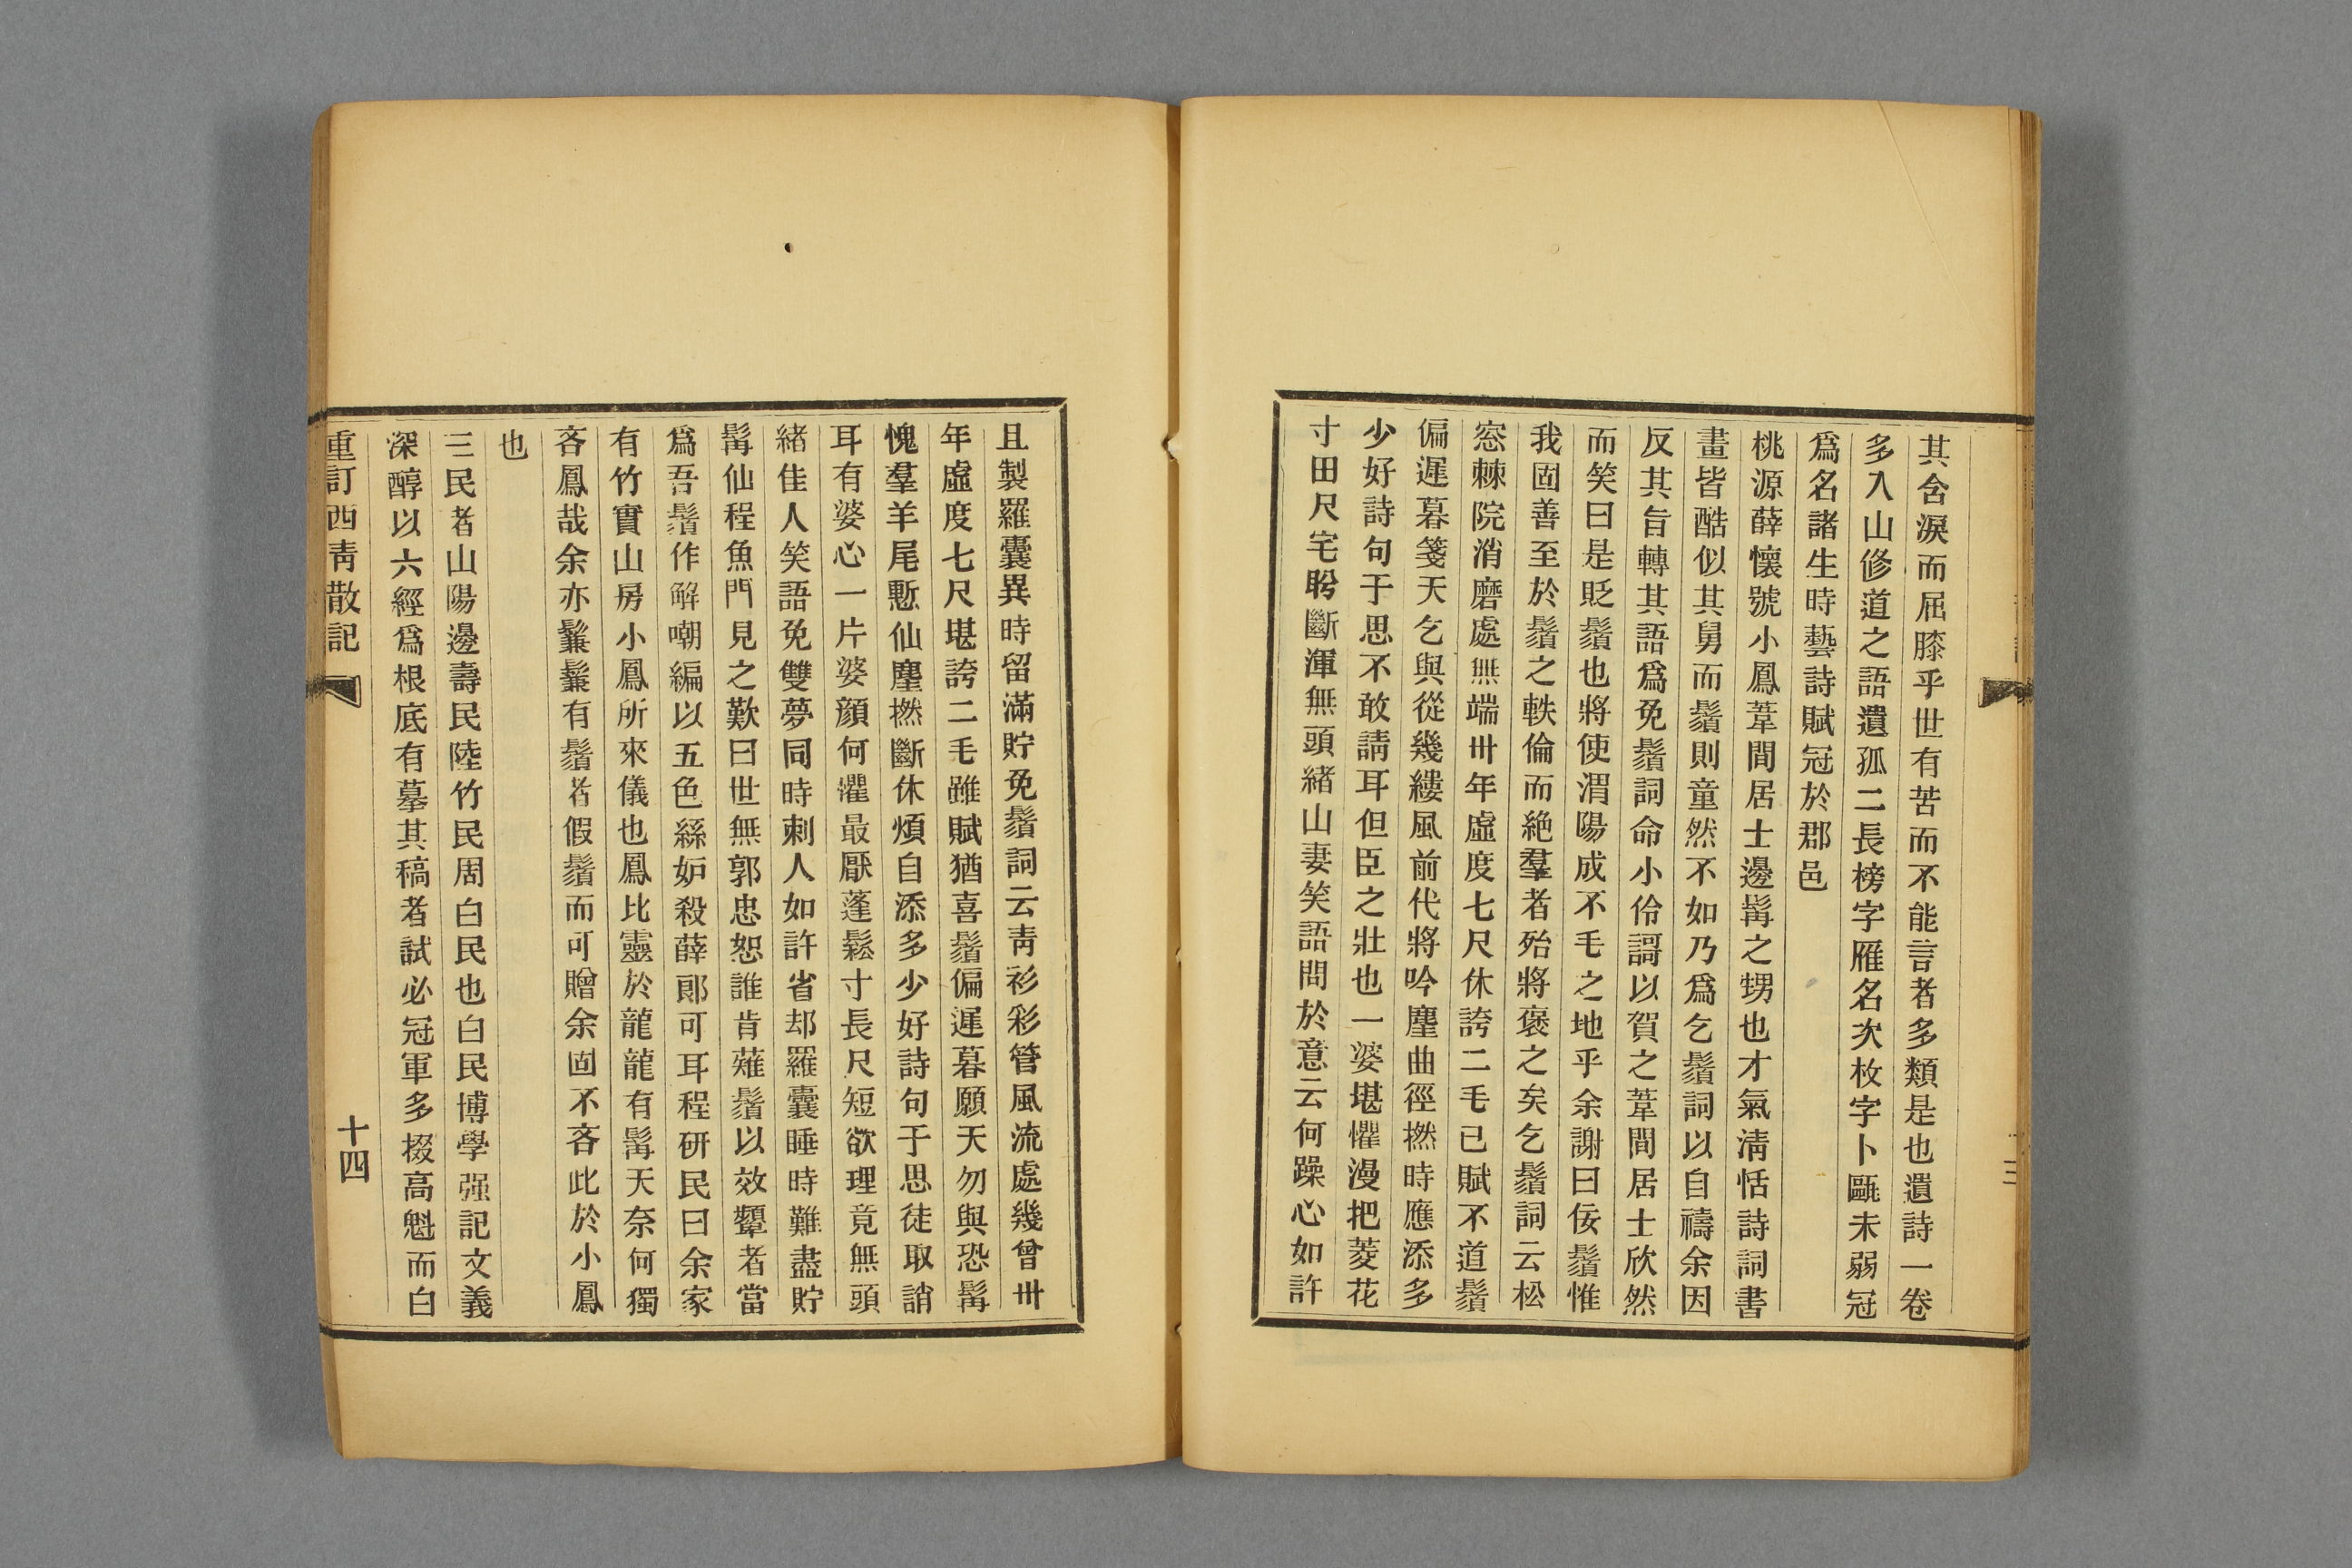 其含淚而屈膝乎世有苦而不能言者多類是也遺詩一卷
多入山修道之語遺孤二長榜字雁名次枚字卜甌未弱冠
爲名諸生時藝詩賦冠於郡邑
桃源薛懷號小鳳葦間居士邊髯之甥也才氣淸恬詩詞書
畫皆酷似其舅而鬚則童然不如乃爲乞鬚詞以自禱余因
反其旨轉其語爲免鬚詞命小伶謌以賀之葦間居士欣然
而笑曰是貶鬚也將使渭陽成不毛之地乎余謝曰佞鬚惟
我固善至於鬚之軼倫而絶羣者殆將褒之矣乞鬚詞云松
窓棘院消磨處無端卅年虛度七尺休誇二毛已賦不道鬚
偏遲暮箋天乞與從幾縷風前代將吟麈曲徑撚時應添多
少好詩句于思不敢請耳但臣之壯也一婆堪懼漫把菱花
寸田尺宅盼斷渾無頭緒山妻笑語問於意云何躁心如許
且製羅囊異時留滿貯免鬚詞云靑衫彩管風流處幾曾卅
年虛度七尺堪誇二毛雖賦猶喜鬚偏遲暮願天勿與恐髯
愧羣羊尾慙仙麈撚斷休煩自添多少好詩句于思徒取誚
耳有婆心一片婆顏何懼最厭蓬鬆寸長尺短欲理竟無頭
緒佳人笑語免雙夢同時刺人如許省却羅囊睡時難盡貯
髯仙程魚門見之歎曰世無郭忠恕誰肯薙鬚以效顰者當
爲吾鬚作解嘲編以五色絲妒殺薛郞可耳程硏民曰余家
有竹實山房小鳳所來儀也鳳比靈於龍龍有髯天奈何獨
吝鳳哉余亦鬑鬑有鬚者假鬚而可贈余固不吝此於小鳳
也
三民者山陽邊壽民陸竹民周白民也白民博學强記文義
深醇以六經爲根底有墓其稿者試必冠軍多掇高魁而白
重訂西靑散記
十四